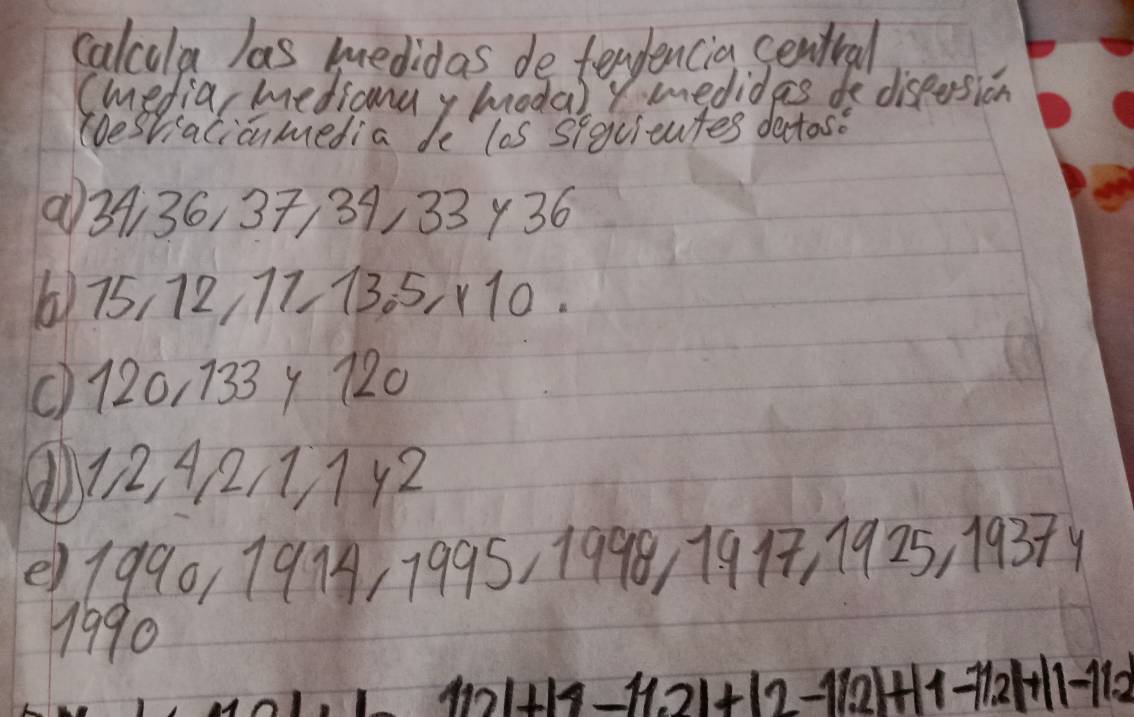 calcula las medidas de tendencia central
(media, mediana y moda) y medidas de dispersión
(Desviación media de los siguientes datos:
a) 34, 36, 37, 34, 33 y 36
b) 15, 12, 11, 13.5, y 10.
c) 120, 133 y 120
d) 1, 2, 4, 2, 1, 1 y 2
e) 1990, 1914, 1995, 1998, 1917, 1925, 1937 y
1990
-11.2|+|2-11.2|+|1-11.2|+|1-11.2|